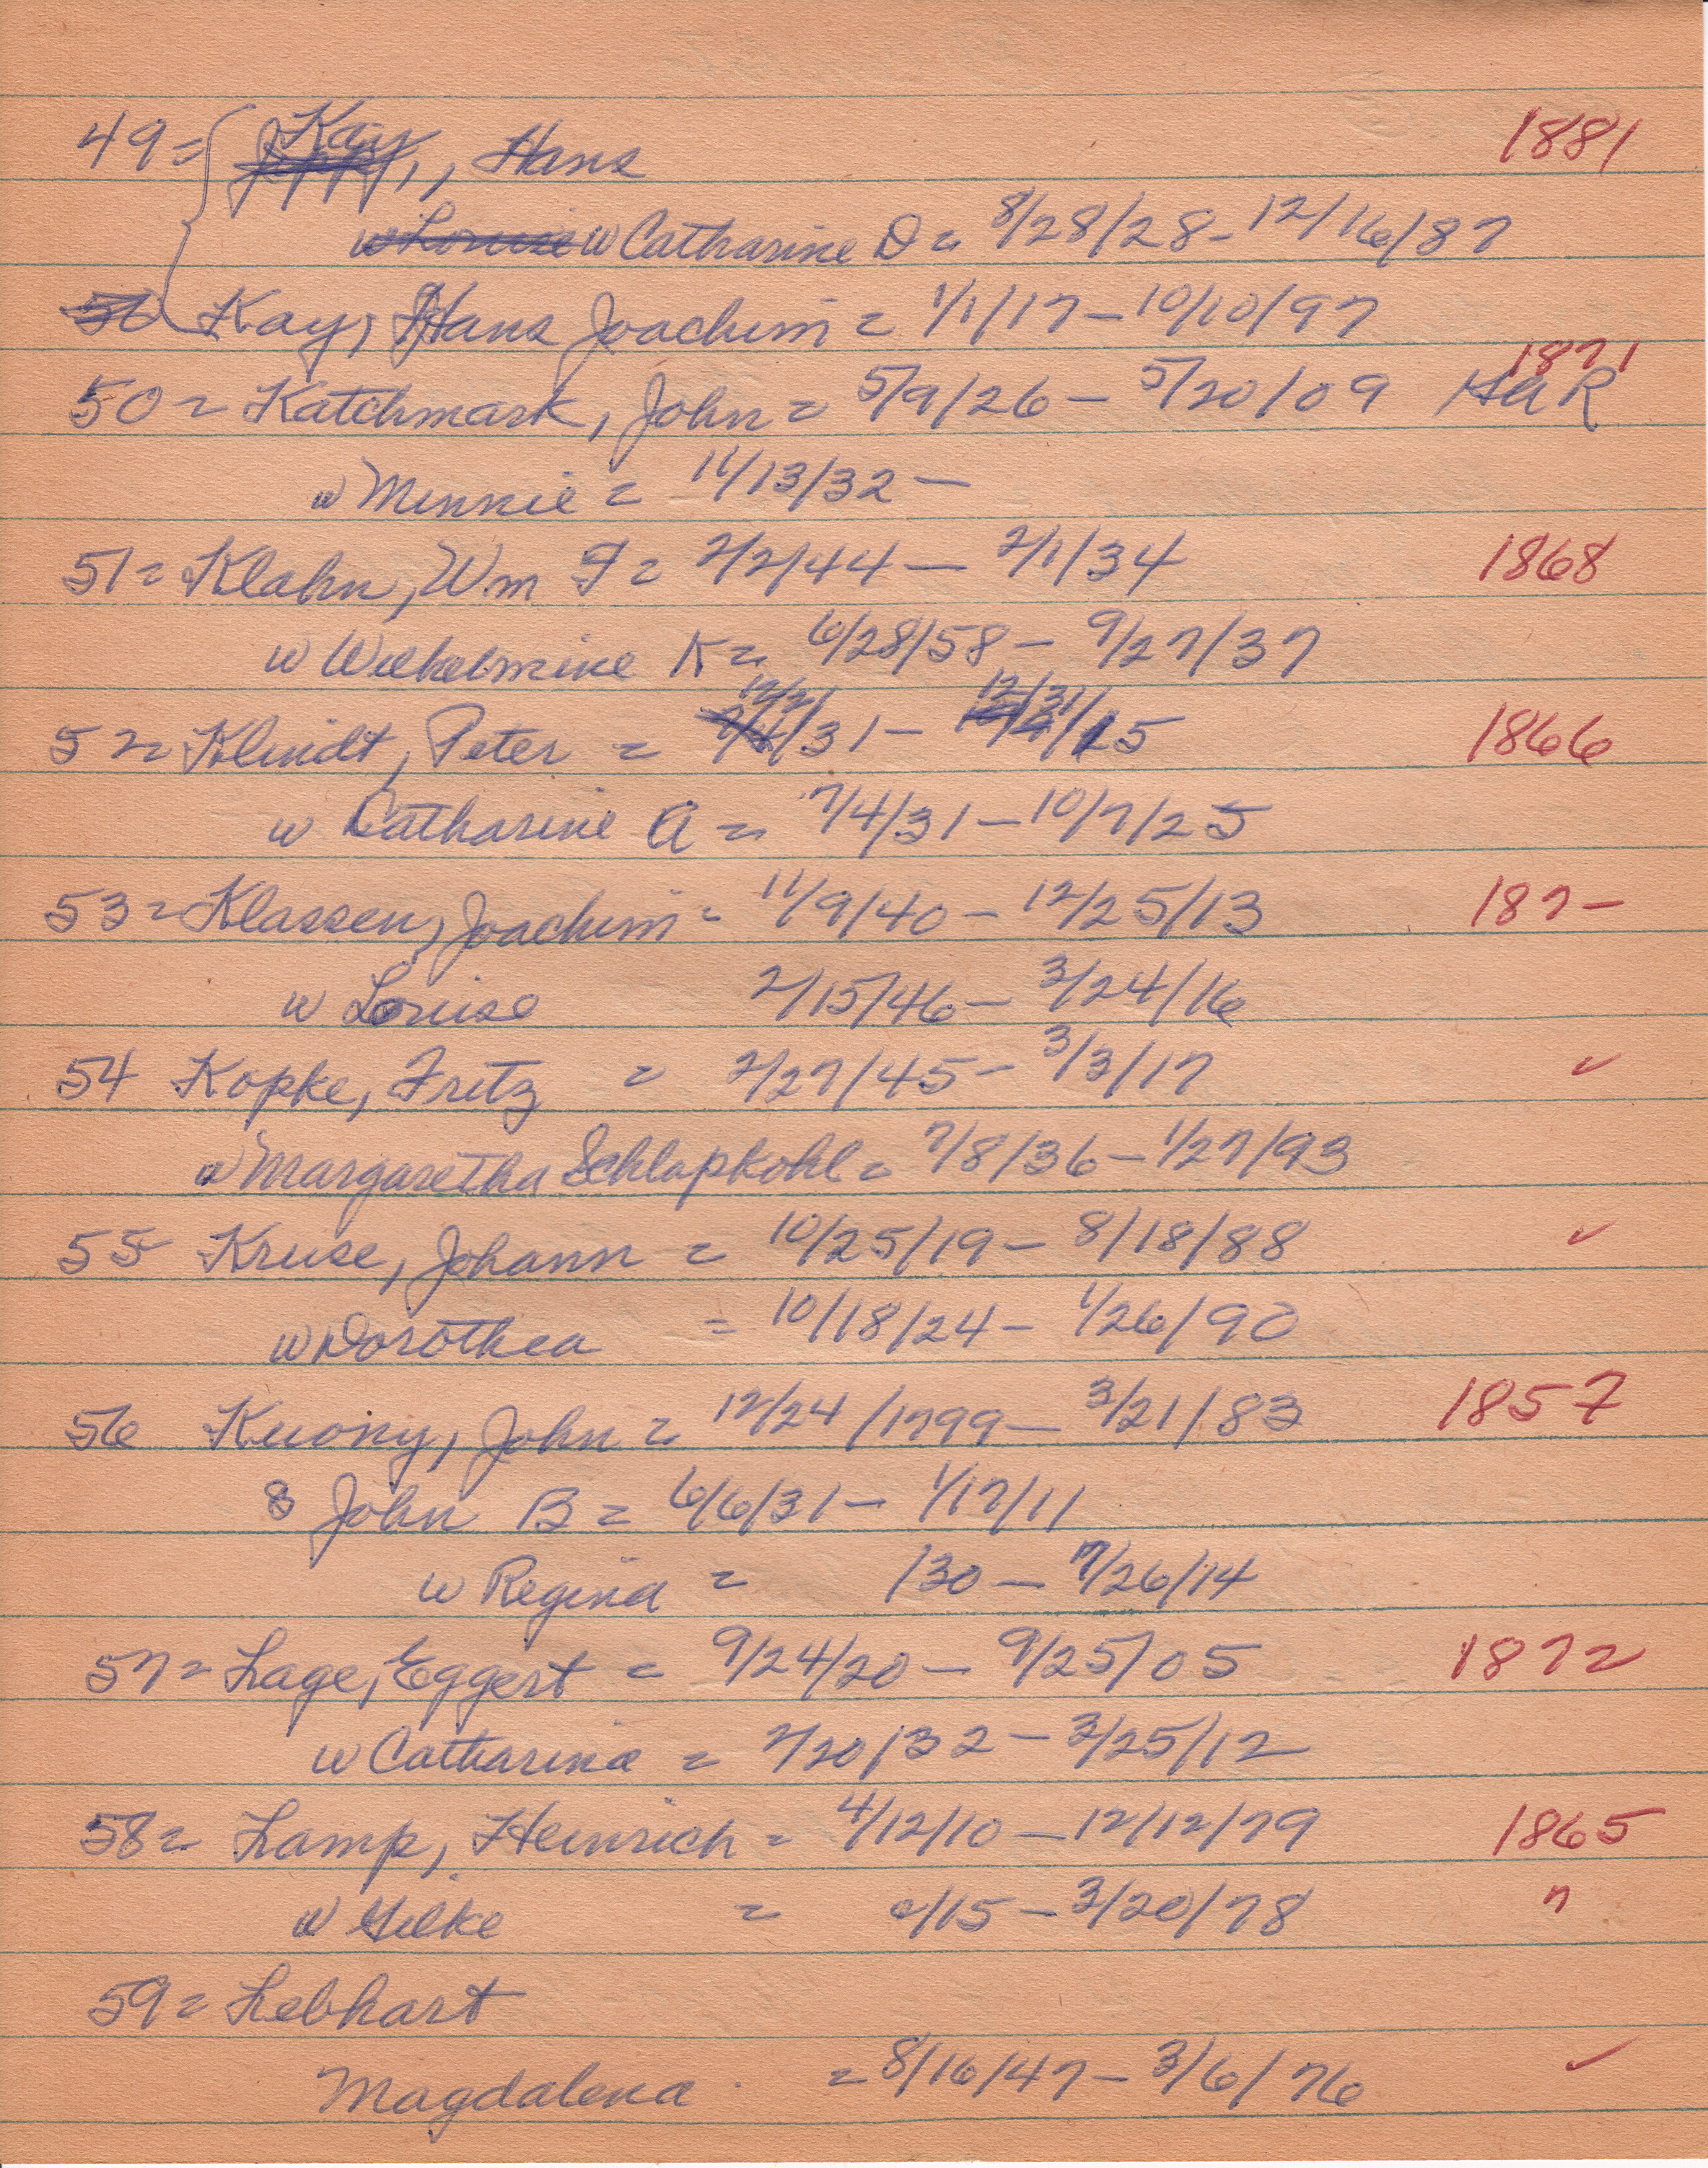 49 = Kay, Hans 1881
w Louise w Catharine D = 8/28/28 - 12/16/87
50 Kay, Hans Joachim = 1/1/17 - 10/10/97
50 = Katchmark, John = 5/9/26 - 5/20/09 1871 GAR
w Minnie = 11/13/32 -
51 = Klahn, Wm F = 2/2/44 - 2/1/34 1868
w Wilhelmine K = 6/28/58 - 9/27/37
52 = Klindt, Peter = 12/2/31 - 12/31/15 1866
w Catharine A = 7/4/31 - 10/7/25
53 = Klassen, Joachim = 11/9/40 - 12/25/13 187-
w Louise 2/15/46 - 3/24/16
54 Kopke, Fritz = 2/27/45 - 3/3/17 ✓
w Margaretha Schlapkohl = 7/8/36 - 1/27/93
55 Kruse, Johann = 10/25/19 - 8/18/88 ✓
w Dorothea = 10/18/24 - 1/26/90
56 Kuony, John = 12/24/1799 - 3/21/83 1857
John B = 6/6/31 - 1/17/11
w Regina = /30 - 7/26/14
57 = Lage, Eggert = 9/24/20 - 9/25/05 1872
w Catharina = 2/20/32 - 3/25/12
58 = Lamp, Heinrich = 4/12/10 - 12/12/79 1865
w = /15 - 3/20/78 "
59 = Lebhart
Magdalena = 8/16/47 - 3/6/76 ✓